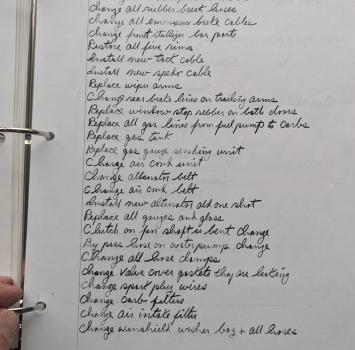 Change all rubber break hoses
Change all emergency brake cables
Change front stabilizer bar parts
Restore all five rims
Install new tack cable
Install new speedo cable
Replace wiper arms
Change rear brake lines on trailing arms
Replace window stop rubber on both doors
Replace all gas lines from fuel pump to carbs
Replace gas tank
Replace gas gauge sending unit
Change air cond unit
Change alternator belt
Change air cond belt
Install new alternator old one shot
Replace all gauges and glass
Clutch on fan shaft is bent change
By pass hose on water pump change
Change all hose clamps
Change valve cover gaskets they are leaking
Change spark plug wires
Change carb filters
Change air intake filter
Change winshield washer bag + all hoses